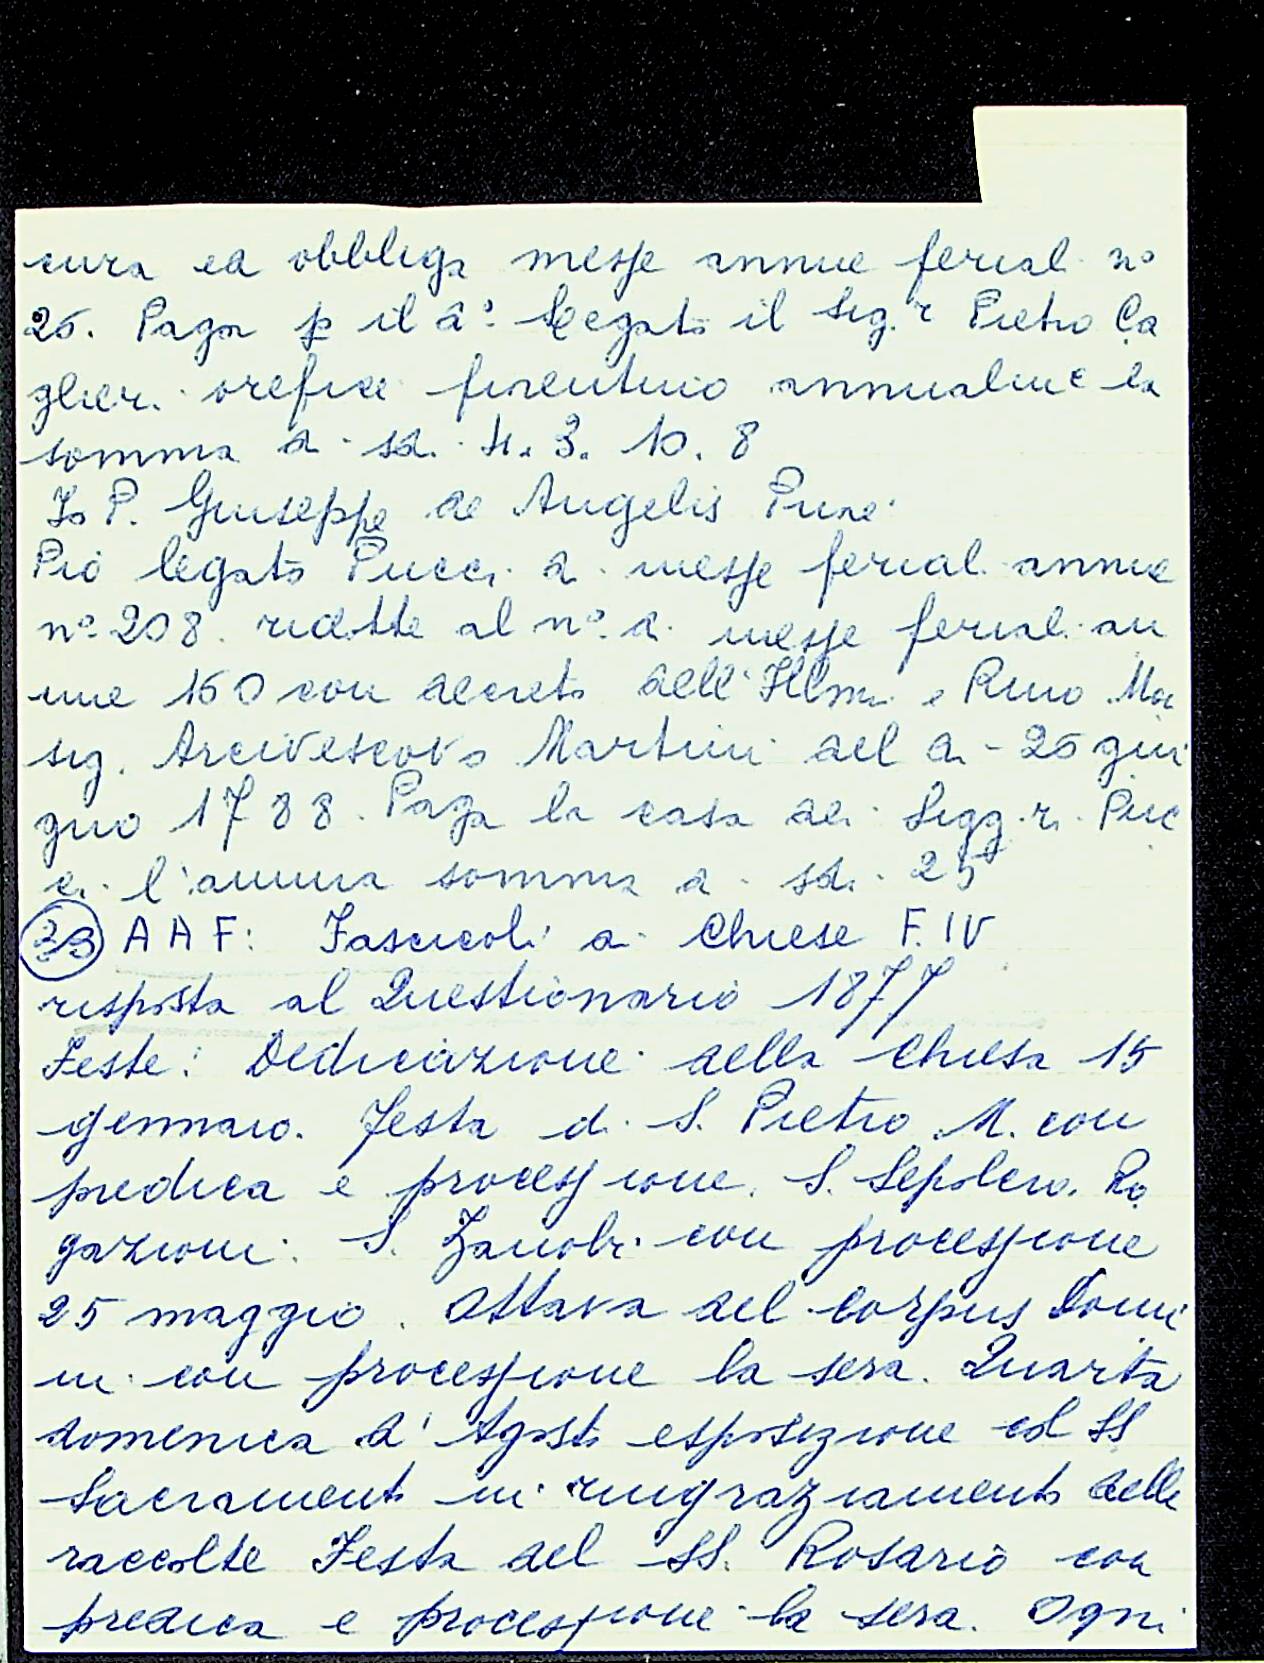 cura ed obbliga messe annue ferial. n°
26. Paga p il d° Legato il Sig.r Pietro Ca
glieri orefice fiorentino annualme la
somma d. sd. 4. 3. 10. 8
Io P. Giuseppe de Angelis Priore
Pio legato Pucci di messe feriali annue
n° 208. ridotte al n° di messe feriali an
nue 160 con decreto dell'Illmo e Rmo Mon
sig. Arcivescovo Martini del dì 26 giu
gno 1788. Paga la casa dei Sigg.ri Puc
ci l'annua somma di sd. 25
33 AAF: Fascicoli di Chiese F. IV
risposta al Questionario 1877
Feste: Dedicazione della Chiesa 15
gennaio. Festa di S. Pietro M. con
predica e processione. S. Sepolcro. Ro
gazioni. S. Zanobi con processione
25 maggio. Ottava del Corpus Domi
ni con processione la sera. Quarta
domenica d'Agosto esposizione col SS
Sacramento in ringraziamento delle
raccolte Festa del SS. Rosario con
predica e processione la sera. Ogni